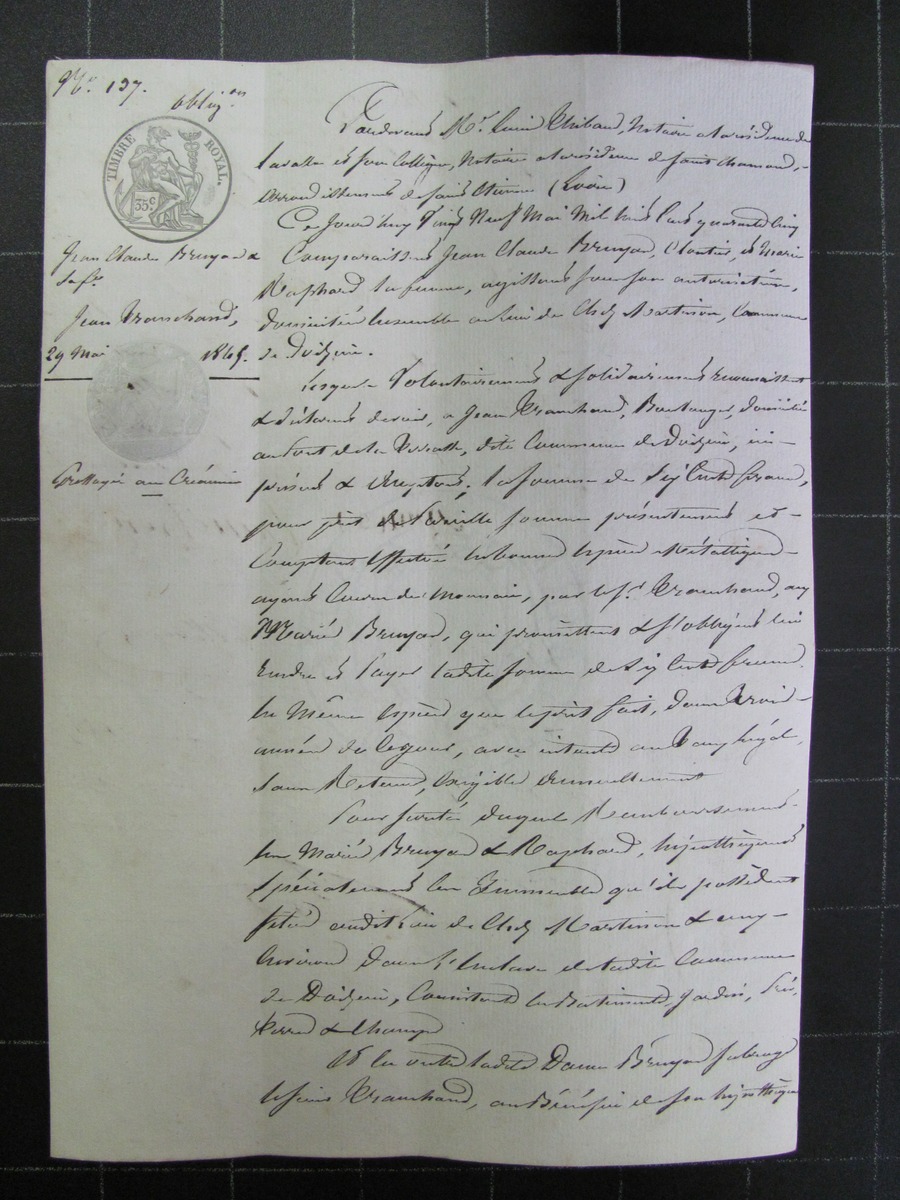 N.o 137.
oblig.on
TIMBRE ROYAL.
35c
Jean Claude Bruyas &
sa fe.
Jean Tranchand,
29 Mai 1845.
Grossoyée au Créancier
Pardevant Me. Louis Thibaud, Notaire à la résidence de
Lavalla et son Collègue, Notaire à la résidence de Saint chamond,
arrondissement de Saint Etienne (Loire)
Ce jourd'huy Vingt Neuf Mai Mil huit Cent quarante Cinq
Comparaissent Jean Claude Bruyas, Cloutier, et Marie
Raphard sa femme, agissant sous son autorisation,
domiciliés Ensemble au lieu de Chez Martinon, Commune
de Doizieu.
Lesquels Volontairement & solidairement reconnaissent
& déclarent devoir, à Jean Tranchand, Boulanger, domicilié
au Pont de la Terrasse, dite Commune de Doizieu, ici
présent & acceptant, la somme de Six Cents francs,
pour prêt de Pareille somme présentement et
Comptant effectué en bonnes Espèces Métalliques
ayant Cours de monnaie, par le sr. Tranchand, aux
Mariés Bruyas, qui promettent & s'obligent lui
rendre et Payer ladite somme de Six Cents francs.
En Même Espèces que le prêt fait, dans Trois
années de ce jour, avec intérêt au Taux légal,
sans Retenue, Exigible annuellement
Pour sûreté duquel Remboursement
les Mariés Bruyas & Raphard, hypothèquent
spécialement les Immeubles qu'ils possèdent
situés audit Lieu de Chez Martinon & aux
Environs dans l'Enclave de ladite Commune
de Doizieu, Consistant en Batiments, Jardin, Prés,
Terres & Champs
Et en outre ladite Dame Bruyas subroge
le sieur Tranchand, au Bénéfice de son hypothèque